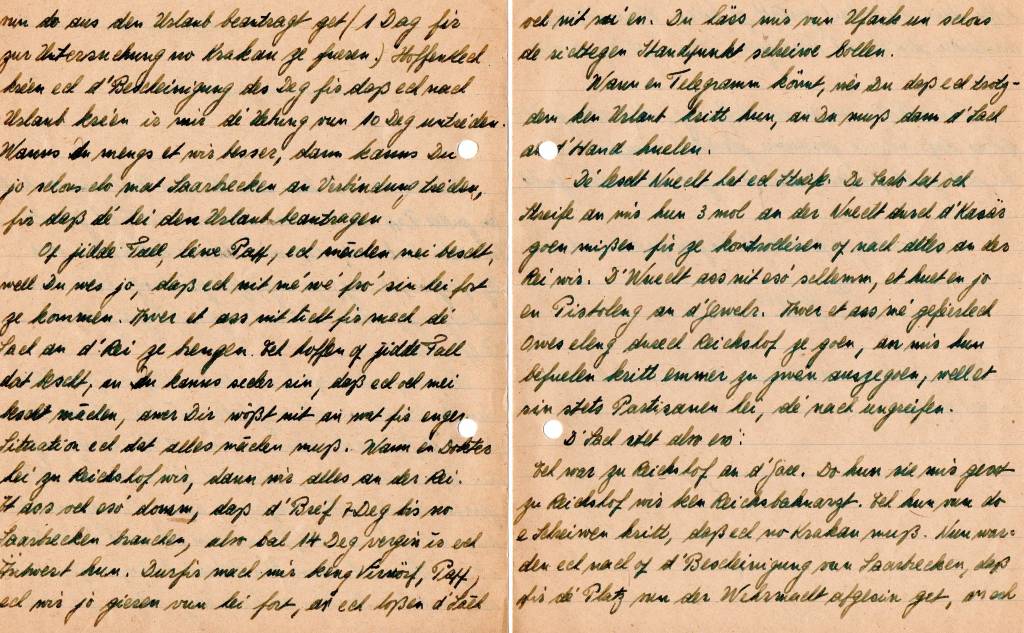 vun do aus den Urlaub beantragt get (1 Dag fir
zur Untersuchung no Krakau ze fueren.) Hoffentlech
kréen ech d'Bescheinigung des Deg fir daß ech nach
Urlaub kréen is mir dé Übung vun 10 Deg
Wanns Du mengs et wir besser, dann kanns Du
jo schons elo mat Saarbrecken an Verbindung treden,
fir daß dé hei den Urlaub beantragen.
Of jidde Fall, léiwe Papp, ech mächen mei bescht,
well Du wes jo, daß ech nit mé wé fro' sin hei fort
ze kommen. Awer et ass nit licht fir mech dé
Sach an d'Rei ze brengen. Ech hoffen of jidde Fall
dat bescht, an Du kanns secher sin, daß ech och mei
bescht mächen, awer Dir wößt nit an wat fir enger
Situation ech dat alles mächen muß. Wann en Dokter
hei zu Reichshof wir, dann wir alles an der Rei.
Et ass och esó domm, daß d'Bréf 7 Deg bis no
Saarbrecken brauchen, also bal 14 Deg vergin is ech
Äntwert hun. Duerfir mach mir keng Virwörf, Papp,
ech wir jo gieren vun hei fort, an ech loßen d'Sach
och nit Du läss mir vun Ufank un schons
de richtegen Standpunkt schreiwe sollen.
Wann en Telegramm könnt, wés Du daß ech trotz-
dem ken Urlaub kritt hun, an Du muß dann d'Sach
an d'Hand huelen.
Dé lescht Nuecht hat ech Streife. De Sarto hat och
Streife an mir hun 3 mol an der Nuecht durch d'Kasär
goen mißen fir ze kontrolléren of nach alles an der
Rei wir. D'Nuecht ass nit esó schlemm, et huet en jo
en Pistoleng an d'Gewehr. Awer et ass mé geférlech
Owes eleng durech Reichshof ze goen, an mir hun
befuelen kritt emmer zu zwen auszegoen, well et
sin stets Partisanen hei, dé nach ungreifen.
D'Sach stet also esó:
Ech war zu Reichshof an d'Gare. Do hun sie mir gesot
zu Reichshof wir ken Reichsbahnarzt. Ech hun vun do
e Schreiwen kritt, daß ech no Krakau muß. Nun war-
den ech nach of d'Bescheinigung vun Saarbrecken, daß
fir dé Platz vun der Wehrmacht ofgesin get, an ech